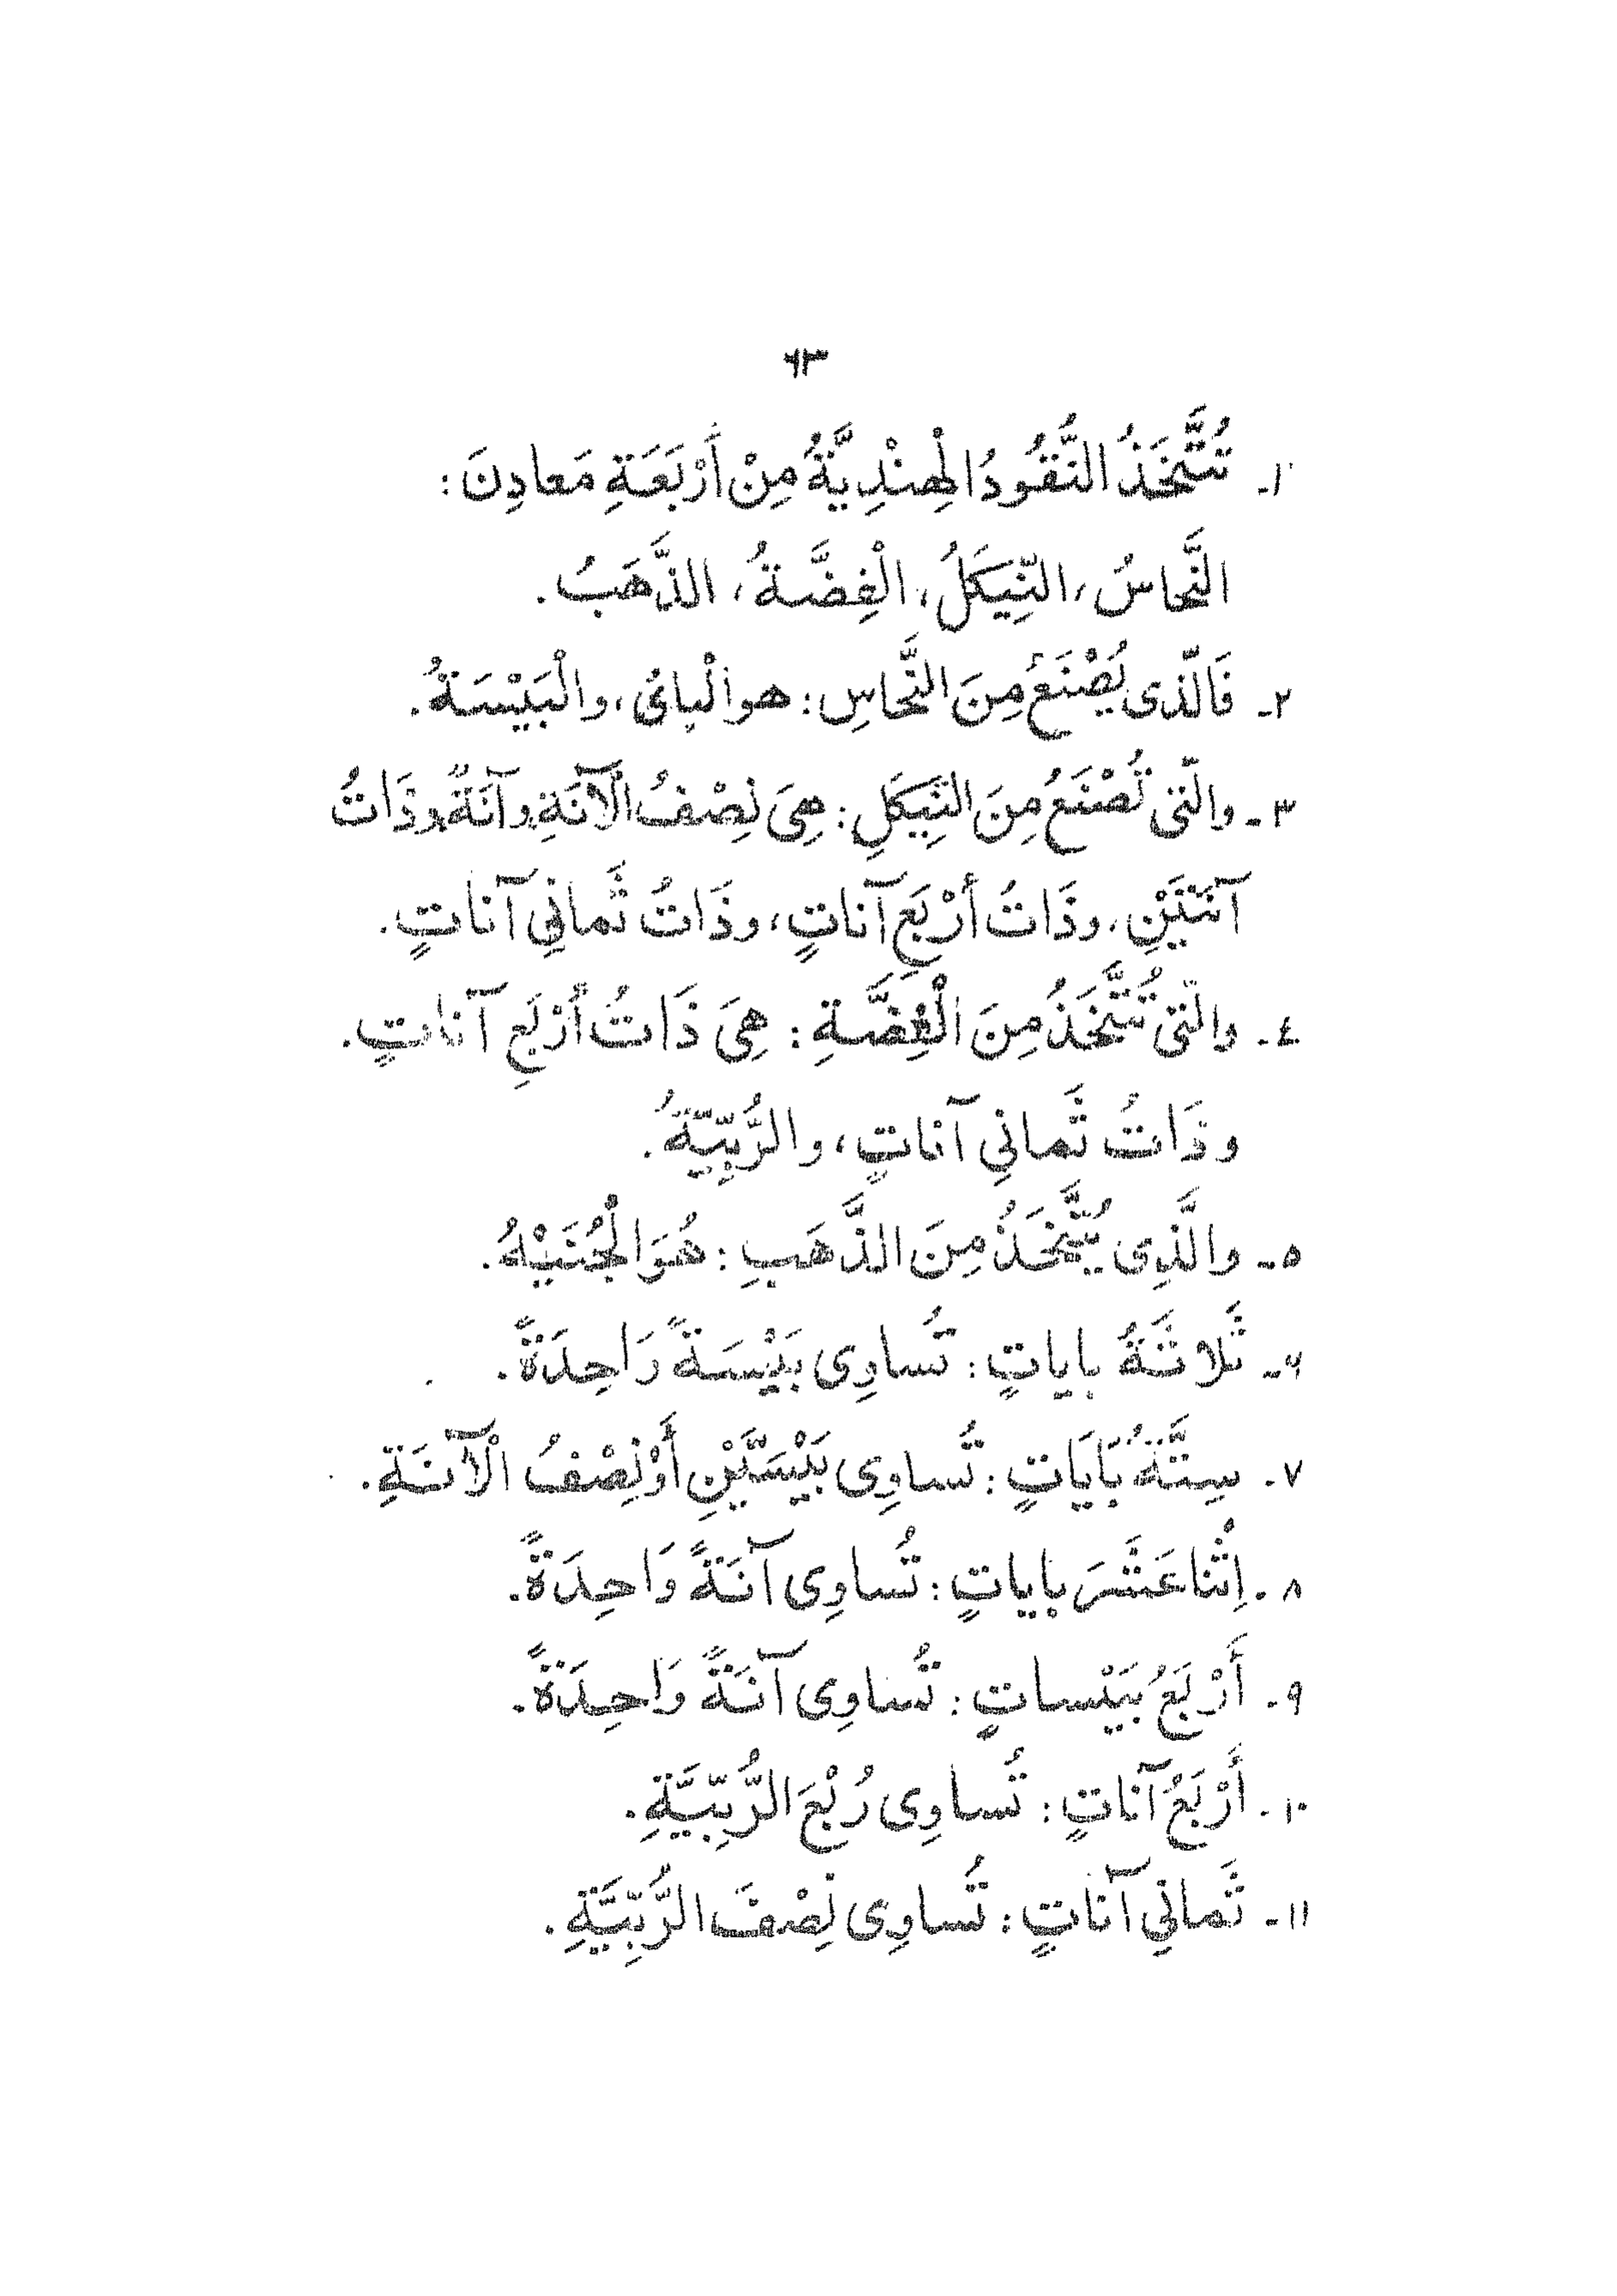 ٦٣
١- تُتَّخَذُ النُّقُودُ الْهِنْدِيَّةُ مِنْ أَرْبَعَةِ مَعادِنَ :
النَّحاسُ، النِّيكَلُ، الْفِضَّةُ، الذَّهَبُ.
٢- فَالّذى يُصْنَعُ مِنَ النَّحاسِ : هوالْبائى، والْبَيْسَةُ.
٣- والّتى تُصْنَعُ مِنَ النِّيكَلِ : هِىَ نِصْفُ الْآنَةِ وآنَةٌ وذَاتُ
آنَتَيْنِ، وذَاتُ أرْبَعِ آناتٍ، وذَاتُ ثَمانِي آناتٍ.
٤- والّتى تُتَّخَذُ مِنَ الْفِضَّةِ : هِىَ ذَاتُ أرْبَعِ آناتٍ.
وذَاتُ ثَمانِي آناتٍ، والرُّبِّيّةُ.
٥- والَّذِى يُتَّخَذُ مِنَ الذَّهَبِ : هُوَ الْجُنَيْهُ.
٦- ثَلاثَةُ باياتٍ : تُساوِى بَيْسَةً وَاحِدَةً.
٧- سِتَّةُ بَايَاتٍ : تُساوِى بَيْسَتَّيْنِ أَوْنِصْفُ الْآنَةِ.
٨- اِثْنا عَشَرَ باياتٍ : تُساوِى آنَةً وَاحِدَةً.
٩- أَرْبَعُ بَيْساتٍ : تُساوِى آنَةً وَاحِدَةً.
١٠- أَرْبَعُ آناتٍ : تُساوِى رُبْعَ الرُّبِّيَّةِ.
١١- ثَمانِي آناتٍ : تُساوِى نِصْفَ الرُّبِّيَّةِ.